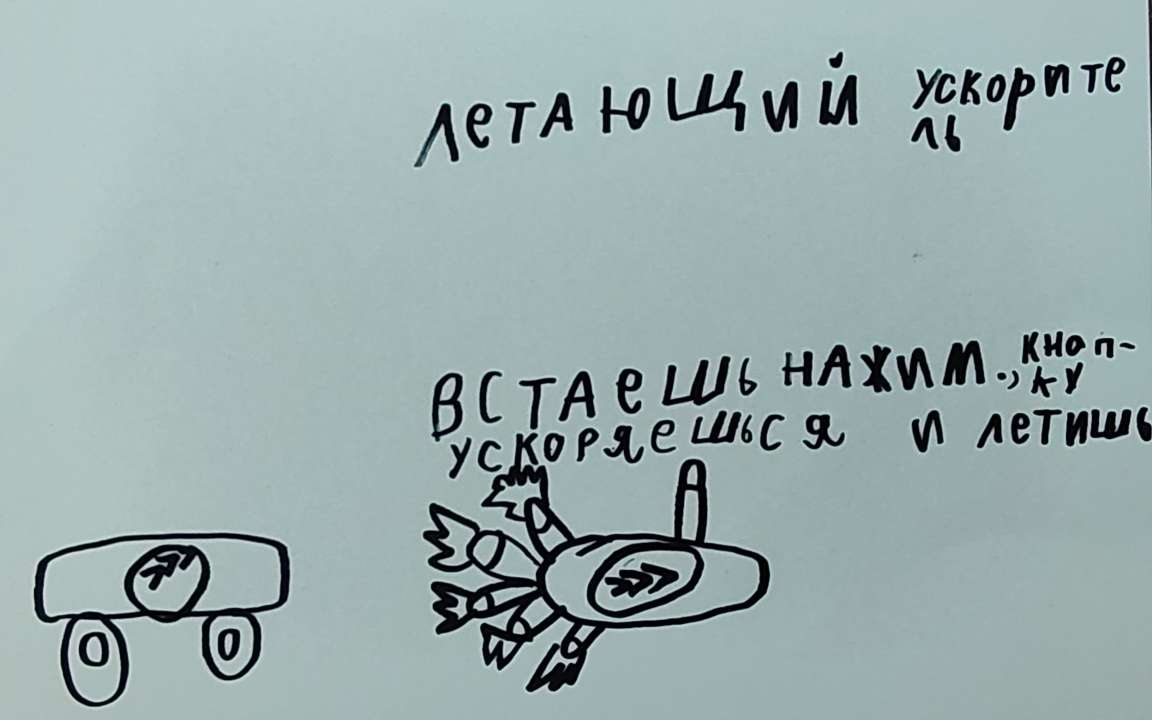 ЛЕТАЮЩИЙ УСКОРИТЕ
ЛЬ
ВСТАЕШЬ НАЖИМ., КНОП-
КУ
УСКОРЯЕШЬСЯ И ЛЕТИШЬ